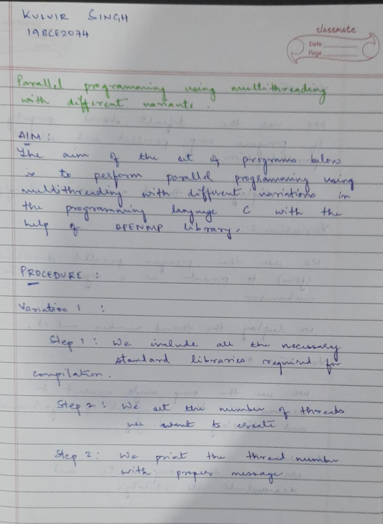 KULVIR SINGH
19BCE2074
classmate
Date
Page
Parallel programming using multithreading
with different variants.
AIM:
The aim of the set of programs below
is to perform parallel programming using
multithreading with different variations in
the programming language C with the
help of OPENMP library.
PROCEDURE :
Variation 1 :
Step 1 : We include all the necessary
standard libraries required for
compilation.
Step 2 : We set the number of threads
we want to create
Step 3 : We print the thread number
with proper message